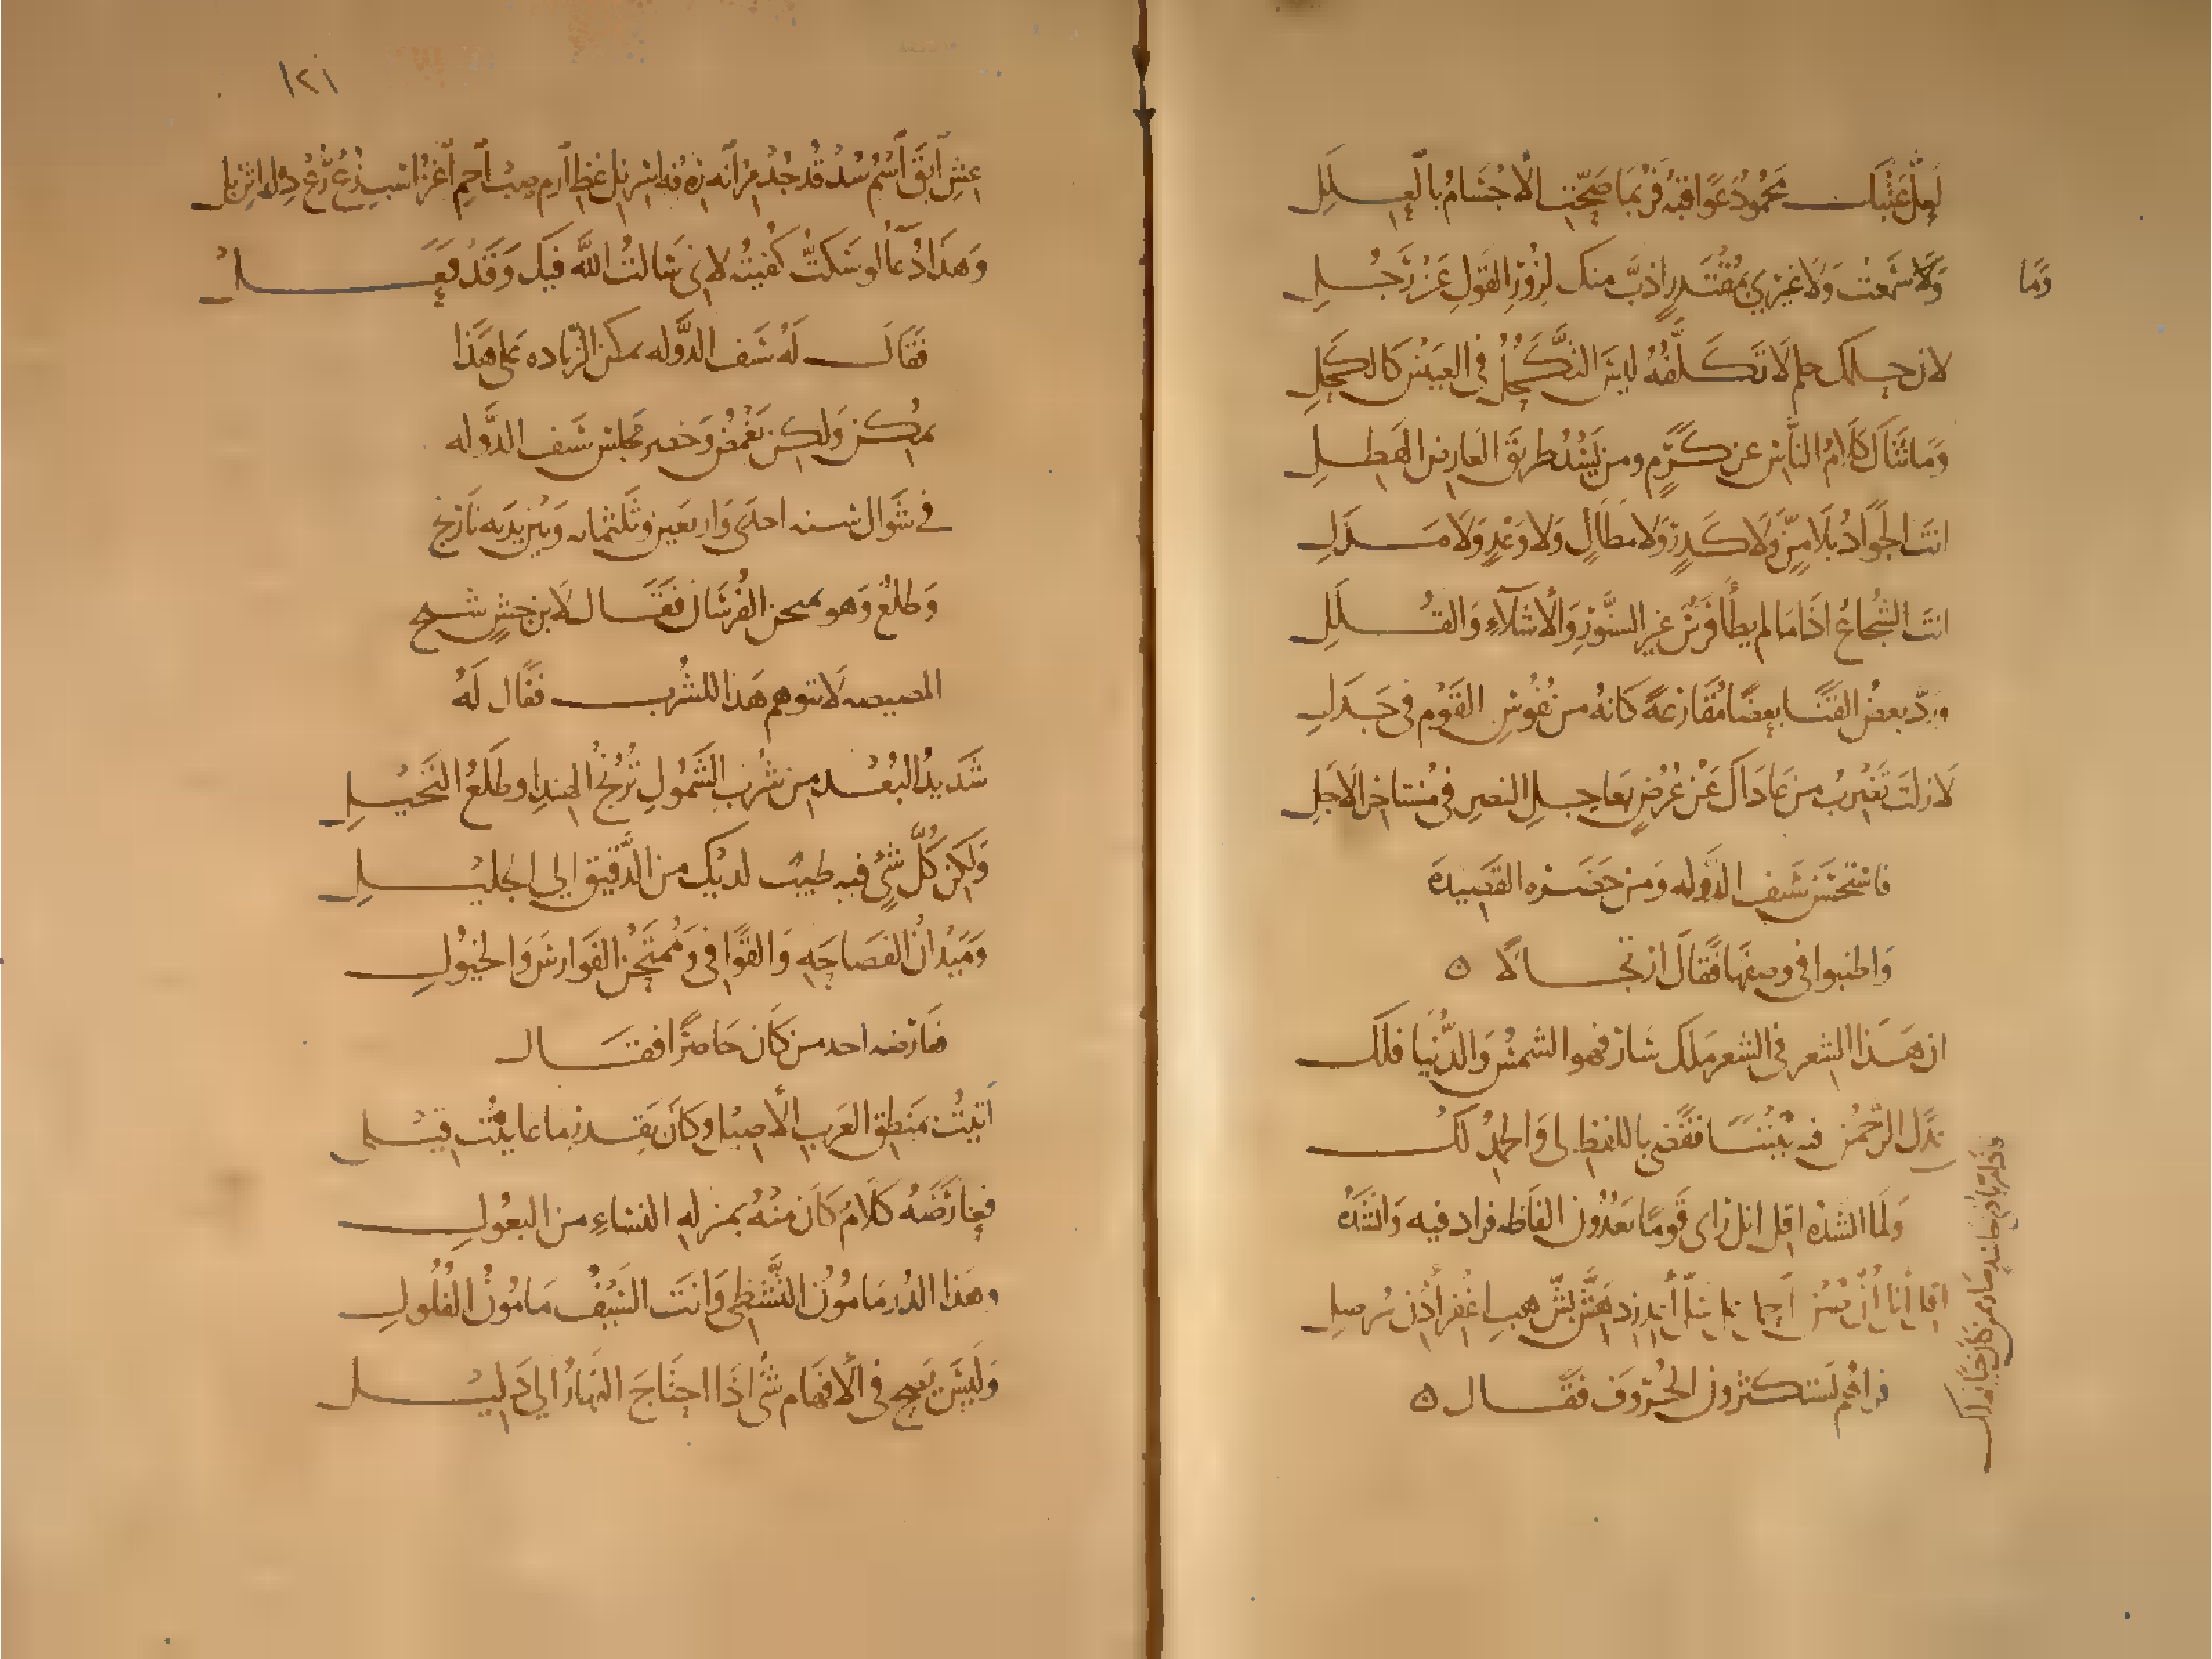 لعل عتبك محمود عواقبه فربما صحت الاجسام بالعلل
ولا سمعت ولا غيري بمقتدر اذب منك لزور القول عن رجل
وما
لان حلمك حلم لا تكلفه ليس التكحل في العينين كالكحل
وما ثناك كلام الناس عن كرم ومن يسد طريق العارض الهطل
انت الجواد بلا من ولا كدر ولا مطال ولا وعد ولا مذل
انت الشجاع اذا ما لم يطأ فرس غير السنور والأشلاء والقلل
ورد بعض القنا بعضا مقارعة كانه من نفوس القوم في جدل
لا زلت تضرب من عاداك عن عرض بعاجل النصر في مستاخر الاجل
فاستحسن سيف الدوله ومن حضره القصيدة
واطنبوا في وصفها فقال ارتجالا ه
ان هذا الشعر في الشعر ملك سار فهو الشمس والدنيا فلك
عدل الرحمن فيه بيننا فقضى باللفظ لي والحمد لك
ولما انشده اقل انل رأى قوما يعدون الفاظه فزاد فيه وانشده
اقل أنل أن صن احمل عل سل أعد زد هش بش هب اغفر أدن سر صل
فراهم يستكثرون الحروف فقال ه
١٢١
عش ابق اسم سد قد جد مر انه ره فه اسر نل غظ ارم صب احم اغز اسب رع زع ده له اثن بل
وهذا دعآ لو سكت كفيته لاني سالت الله فيك وقد فعل
فقال له سيف الدوله يمكن الزياده على هذا
يمكن ولكن يغمض وحضر مجلس سيف الدوله
في شوال سنه احدى واربعين وثلثمايه وبين يديه نارنج
وطلع وهو يمتحن الفرسان فقال لابن جش شيخ
المصيصه لا تتوهم هذا للشرب فقال له
شديد البعد من شرب الشمول ترنج الهند او طلع النخيل
ولكن كل شيء فيه طيب لديك من الدقيق الى الجليل
وميدان الفصاحه والقوافي وممتحن الفوارس والخيول
فعارضه احد من كان حاضرا فقال
اتيت بمنطق العرب الأصيل وكان بقدر ما عاينت قيلي
فعارضه كلام كان منه بمنزله النساء من البعول
وهذا الدر مامون التشظي وانت السيف مامون الفلول
وليس يصح في الأفهام شي اذا احتاج النهار الى دليل